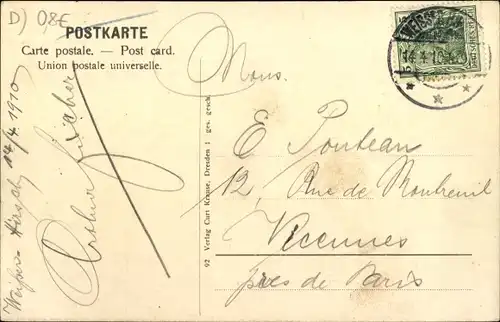 D) 0,8€
POSTKARTE
Carte postale. — Post card.
Union postale universelle.
Weißer Hirsch, 14/4 1910
Arthur
Mons.
E Ponteau
12, Rue de Montreuil
Vicennes
près de Paris
92 Verlag Curt Krause, Dresden 1 ges. gesch.
14.4.10